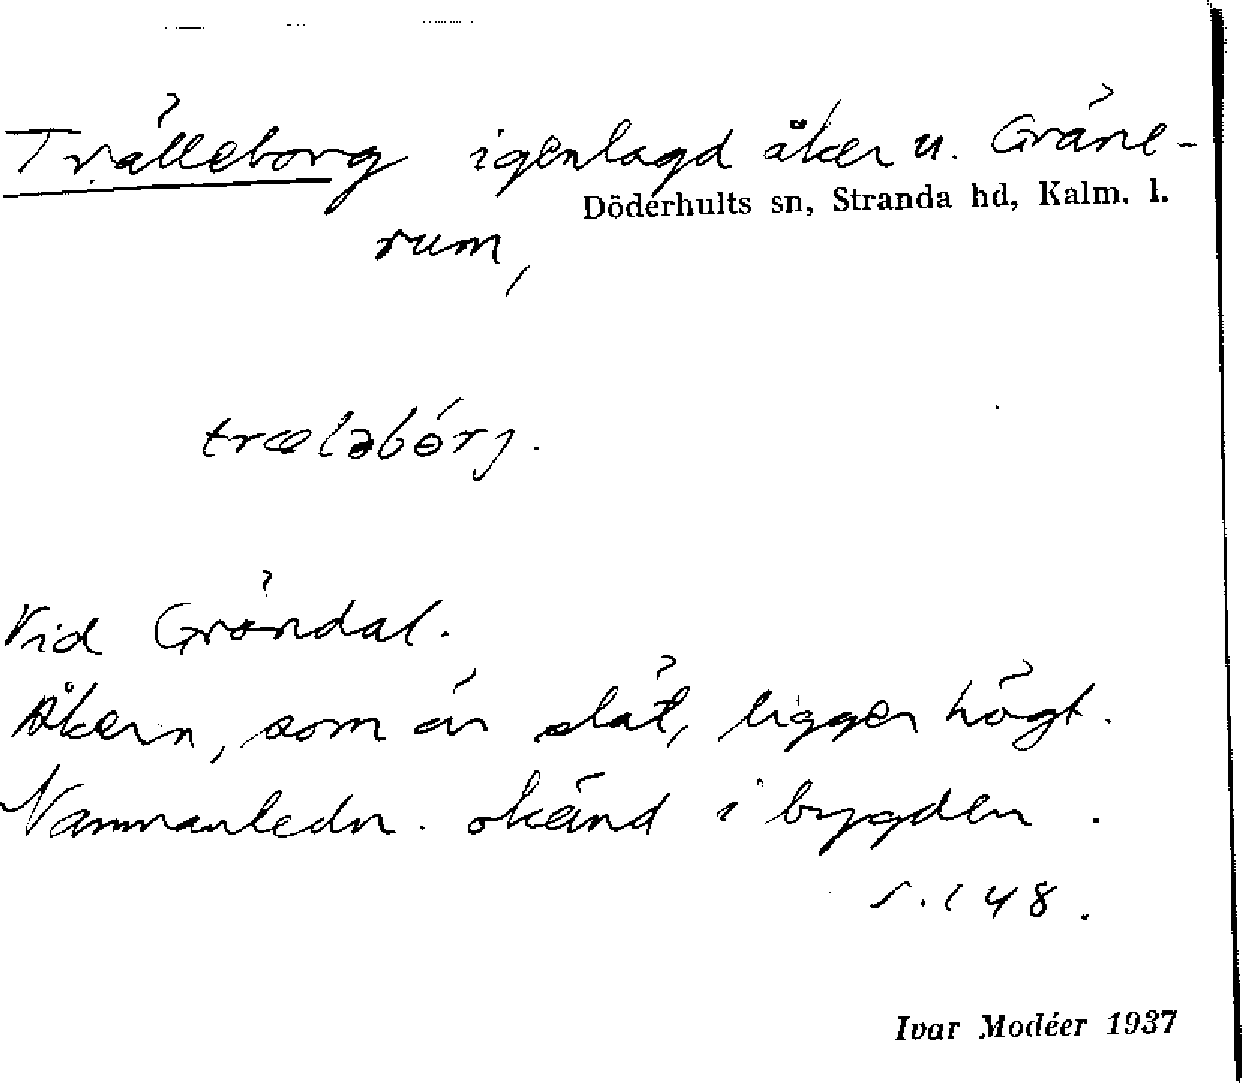 Trälleborg igenlagd åker u. Gräne-
Döderhults sn, Stranda hd, Kalm. l.
rum,
træləbórj.
Vid Gröndal.
Åkern, som är slät, ligger högt.
Namnanledn. okänd i bygden.
s. 148.
Ivar Modéer 1937